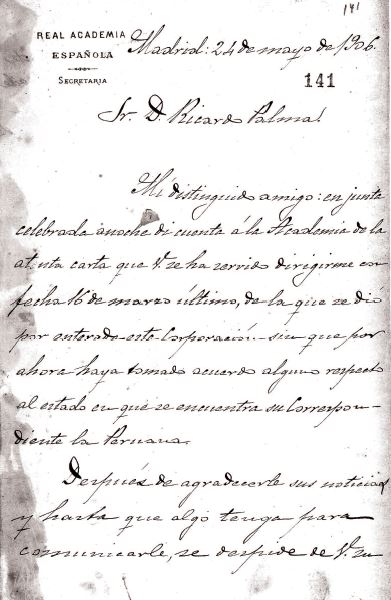 141
REAL ACADEMIA
ESPAÑOLA
SECRETARIA
Madrid: 24 de mayo de 1906.
141
Sr. D. Ricardo Palma
Mi distinguido amigo: en junta
celebrada anoche di cuenta á la Academia de la
atenta carta que V. se ha servido dirigirme con
fecha 16 de marzo último, de la que se dió
por enterado este Corporación sin que por
ahora haya tomado acuerdo alguno respecto
al estado en que se encuentra su Correspon-
diente la Peruana.
Después de agradecerle sus noticias
y hasta que algo tenga para
comunicarle, se despide de V. su